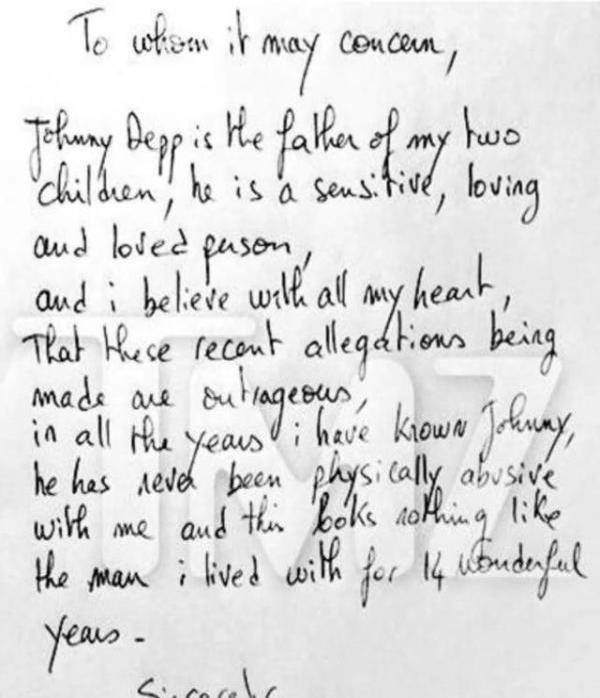 To whom it may concern,
Johnny Depp is the father of my two
children, he is a sensitive, loving
and loved person,
and i believe with all my heart,
That these recent allegations being
made are outrageous,
in all the years i have known Johnny,
he has never been physically abusive
with me and this looks nothing like
the man i lived with for 14 wonderful
years -
Sincerely
TMZ